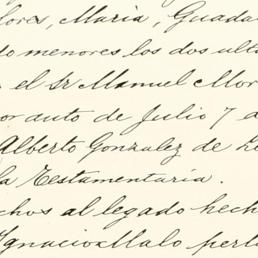 lores, Maria, Guada
do menores los dos ult
el Sr Manuel Mor
por auto de Julio 7 a
Alberto Gonzalez de L
la Testamentaria.
chos al legado hech
Ignacio Malo perte